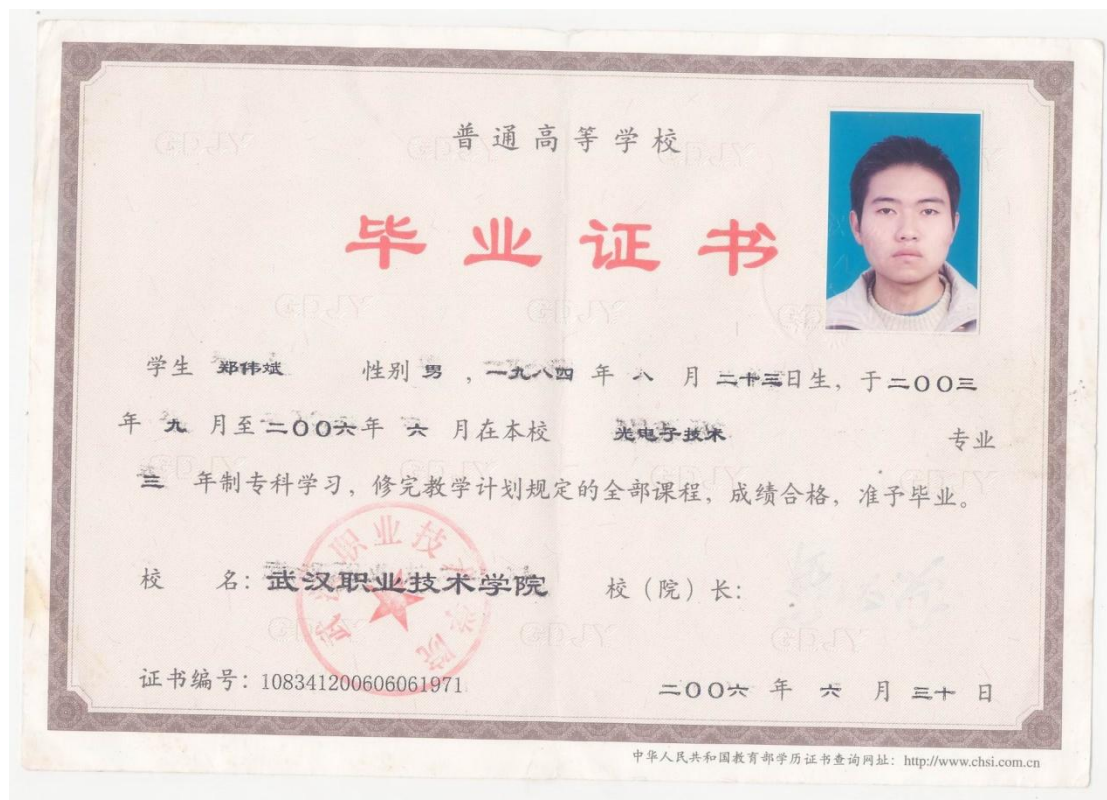 普通高等学校
毕业证书
学生 郑伟斌 性别 男 ，一九八四 年 八 月 二十三日生，于二〇〇三
年 九 月至二〇〇六年 六 月在本校 光电子技术 专业
三 年制专科学习，修完教学计划规定的全部课程，成绩合格，准予毕业。
校 名：武汉职业技术学院 校（院）长：
武汉职业技术学院
证书编号：108341200606061971
二〇〇六 年 六 月 三十 日
中华人民共和国教育部学历证书查询网址：http://www.chsi.com.cn